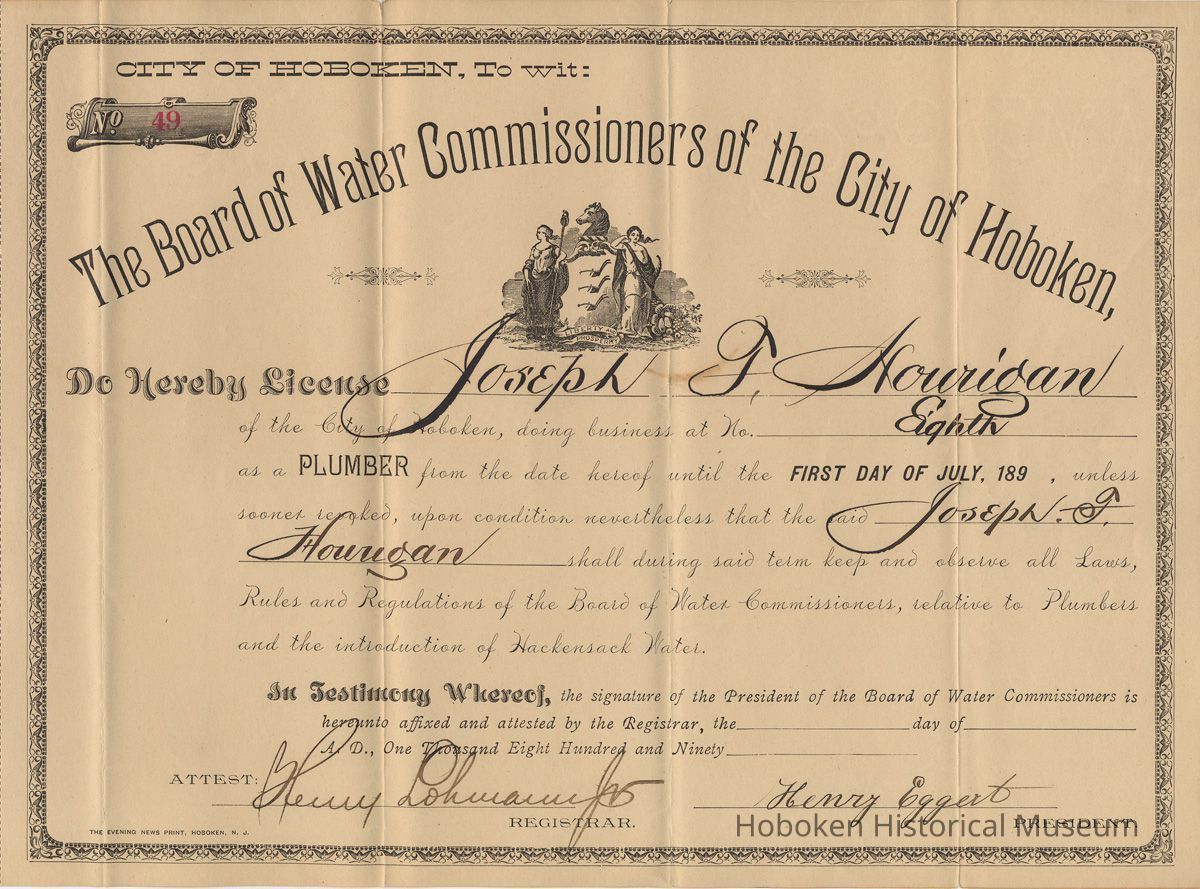 CITY OF HOBOKEN, To wit:
No 49
The Board of Water Commissioners of the City of Hoboken,
LIBERTY
PROSPERITY
Do Hereby License Joseph T. Hourigan
of the City of Hoboken, doing business at No. Eighth
as a PLUMBER from the date hereof until the FIRST DAY OF JULY, 189 , unless
sooner revoked, upon condition nevertheless that the said Joseph. T.
Hourigan shall during said term keep and observe all Laws,
Rules and Regulations of the Board of Water Commissioners, relative to Plumbers
and the introduction of Hackensack Water.
In Testimony Whereof, the signature of the President of the Board of Water Commissioners is
hereunto affixed and attested by the Registrar, the day of
A. D., One Thousand Eight Hundred and Ninety
ATTEST: Henry Lohmann Jr Henry Eggert
REGISTRAR. PRESIDENT.
THE EVENING NEWS PRINT, HOBOKEN, N. J.
Hoboken Historical Museum